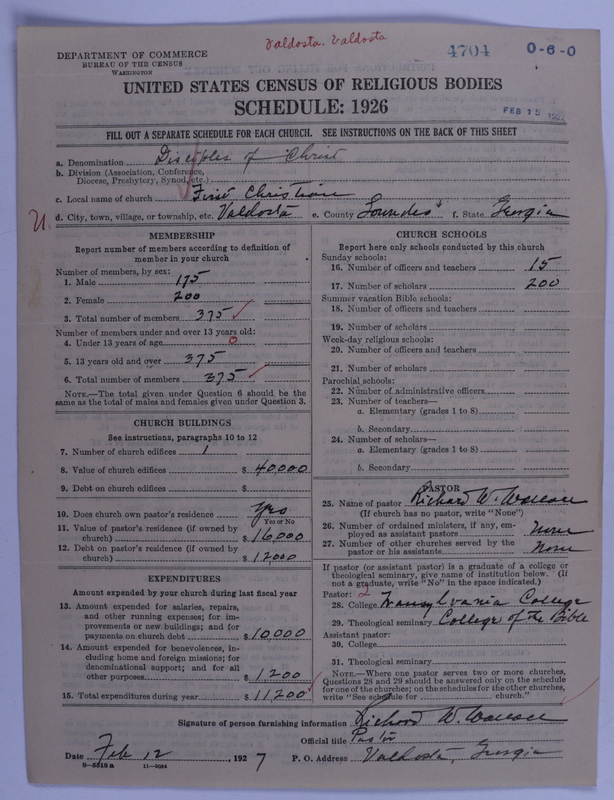 Valdosta. Valdosta
4704
0-6-0
DEPARTMENT OF COMMERCE
BUREAU OF THE CENSUS
WASHINGTON
UNITED STATES CENSUS OF RELIGIOUS BODIES
SCHEDULE: 1926
FEB 15 1927
FILL OUT A SEPARATE SCHEDULE FOR EACH CHURCH. SEE INSTRUCTIONS ON THE BACK OF THIS SHEET
a. Denomination Disciples of Christ
b. Division (Association, Conference,
Diocese, Presbytery, Synod, etc.)
c. Local name of church First Christian
U.
d. City, town, village, or township, etc. Valdosta e. County Lowndes f. State Georgia
MEMBERSHIP
Report number of members according to definition of
member in your church
Number of members, by sex:
1. Male 175
2. Female 200
3. Total number of members 375
Number of members under and over 13 years old:
4. Under 13 years of age 0
5. 13 years old and over 375
6. Total number of members 375
NOTE.—The total given under Question 6 should be
same as the total of males and females given under Question 3.
CHURCH BUILDINGS
See instructions, paragraphs 10 to 12
7. Number of church edifices 1
8. Value of church edifices $ 40,000
9. Debt on church edifices $
10. Does church own pastor's residence yes
Yes or No
11. Value of pastor's residence (if owned by
church) $ 16,000
12. Debt on pastor's residence (if owned by
church) $ 12000
EXPENDITURES
Amount expended by your church during last fiscal year
13. Amount expended for salaries, repairs,
and other running expenses; for im-
provements or new buildings; and for
payments on church debt $ 10,000
14. Amount expended for benevolences, in-
cluding home and foreign missions; for
denominational support; and for all
other purposes $ 1200
15. Total expenditures during year $ 11200
CHURCH SCHOOLS
Report here only schools conducted by this church
Sunday schools:
16. Number of officers and teachers 15
17. Number of scholars 200
Summer vacation Bible schools:
18. Number of officers and teachers
19. Number of scholars
Week-day religious schools:
20. Number of officers and teachers
21. Number of scholars
Parochial schools:
22. Number of administrative officers
23. Number of teachers—
a. Elementary (grades 1 to 8)
b. Secondary
24. Number of scholars—
a. Elementary (grades 1 to 8)
b. Secondary
PASTOR
25. Name of pastor Richard W. Wallace
(If church has no pastor, write "None")
26. Number of ordained ministers, if any, em-
ployed as assistant pastors None
27. Number of other churches served by the
pastor or his assistants None
If pastor (or assistant pastor) is a graduate of a college or
theological seminary, give name of institution below. (If
not a graduate, write "No" in the space indicated.)
Pastor: 2
28. College Transylvania College
29. Theological seminary College of the Bible
Assistant pastor:
30. College
31. Theological seminary
NOTE.—Where one pastor serves two or more churches,
Questions 28 and 29 should be answered only on the schedule
for one of the churches; on the schedules for the other churches,
write "See schedule for church."
Signature of person furnishing information Richard W. Wallace
Official title Pastor
Date Feb 12, 1927 P. O. Address Valdosta, Georgia
8-5318a 11-9054